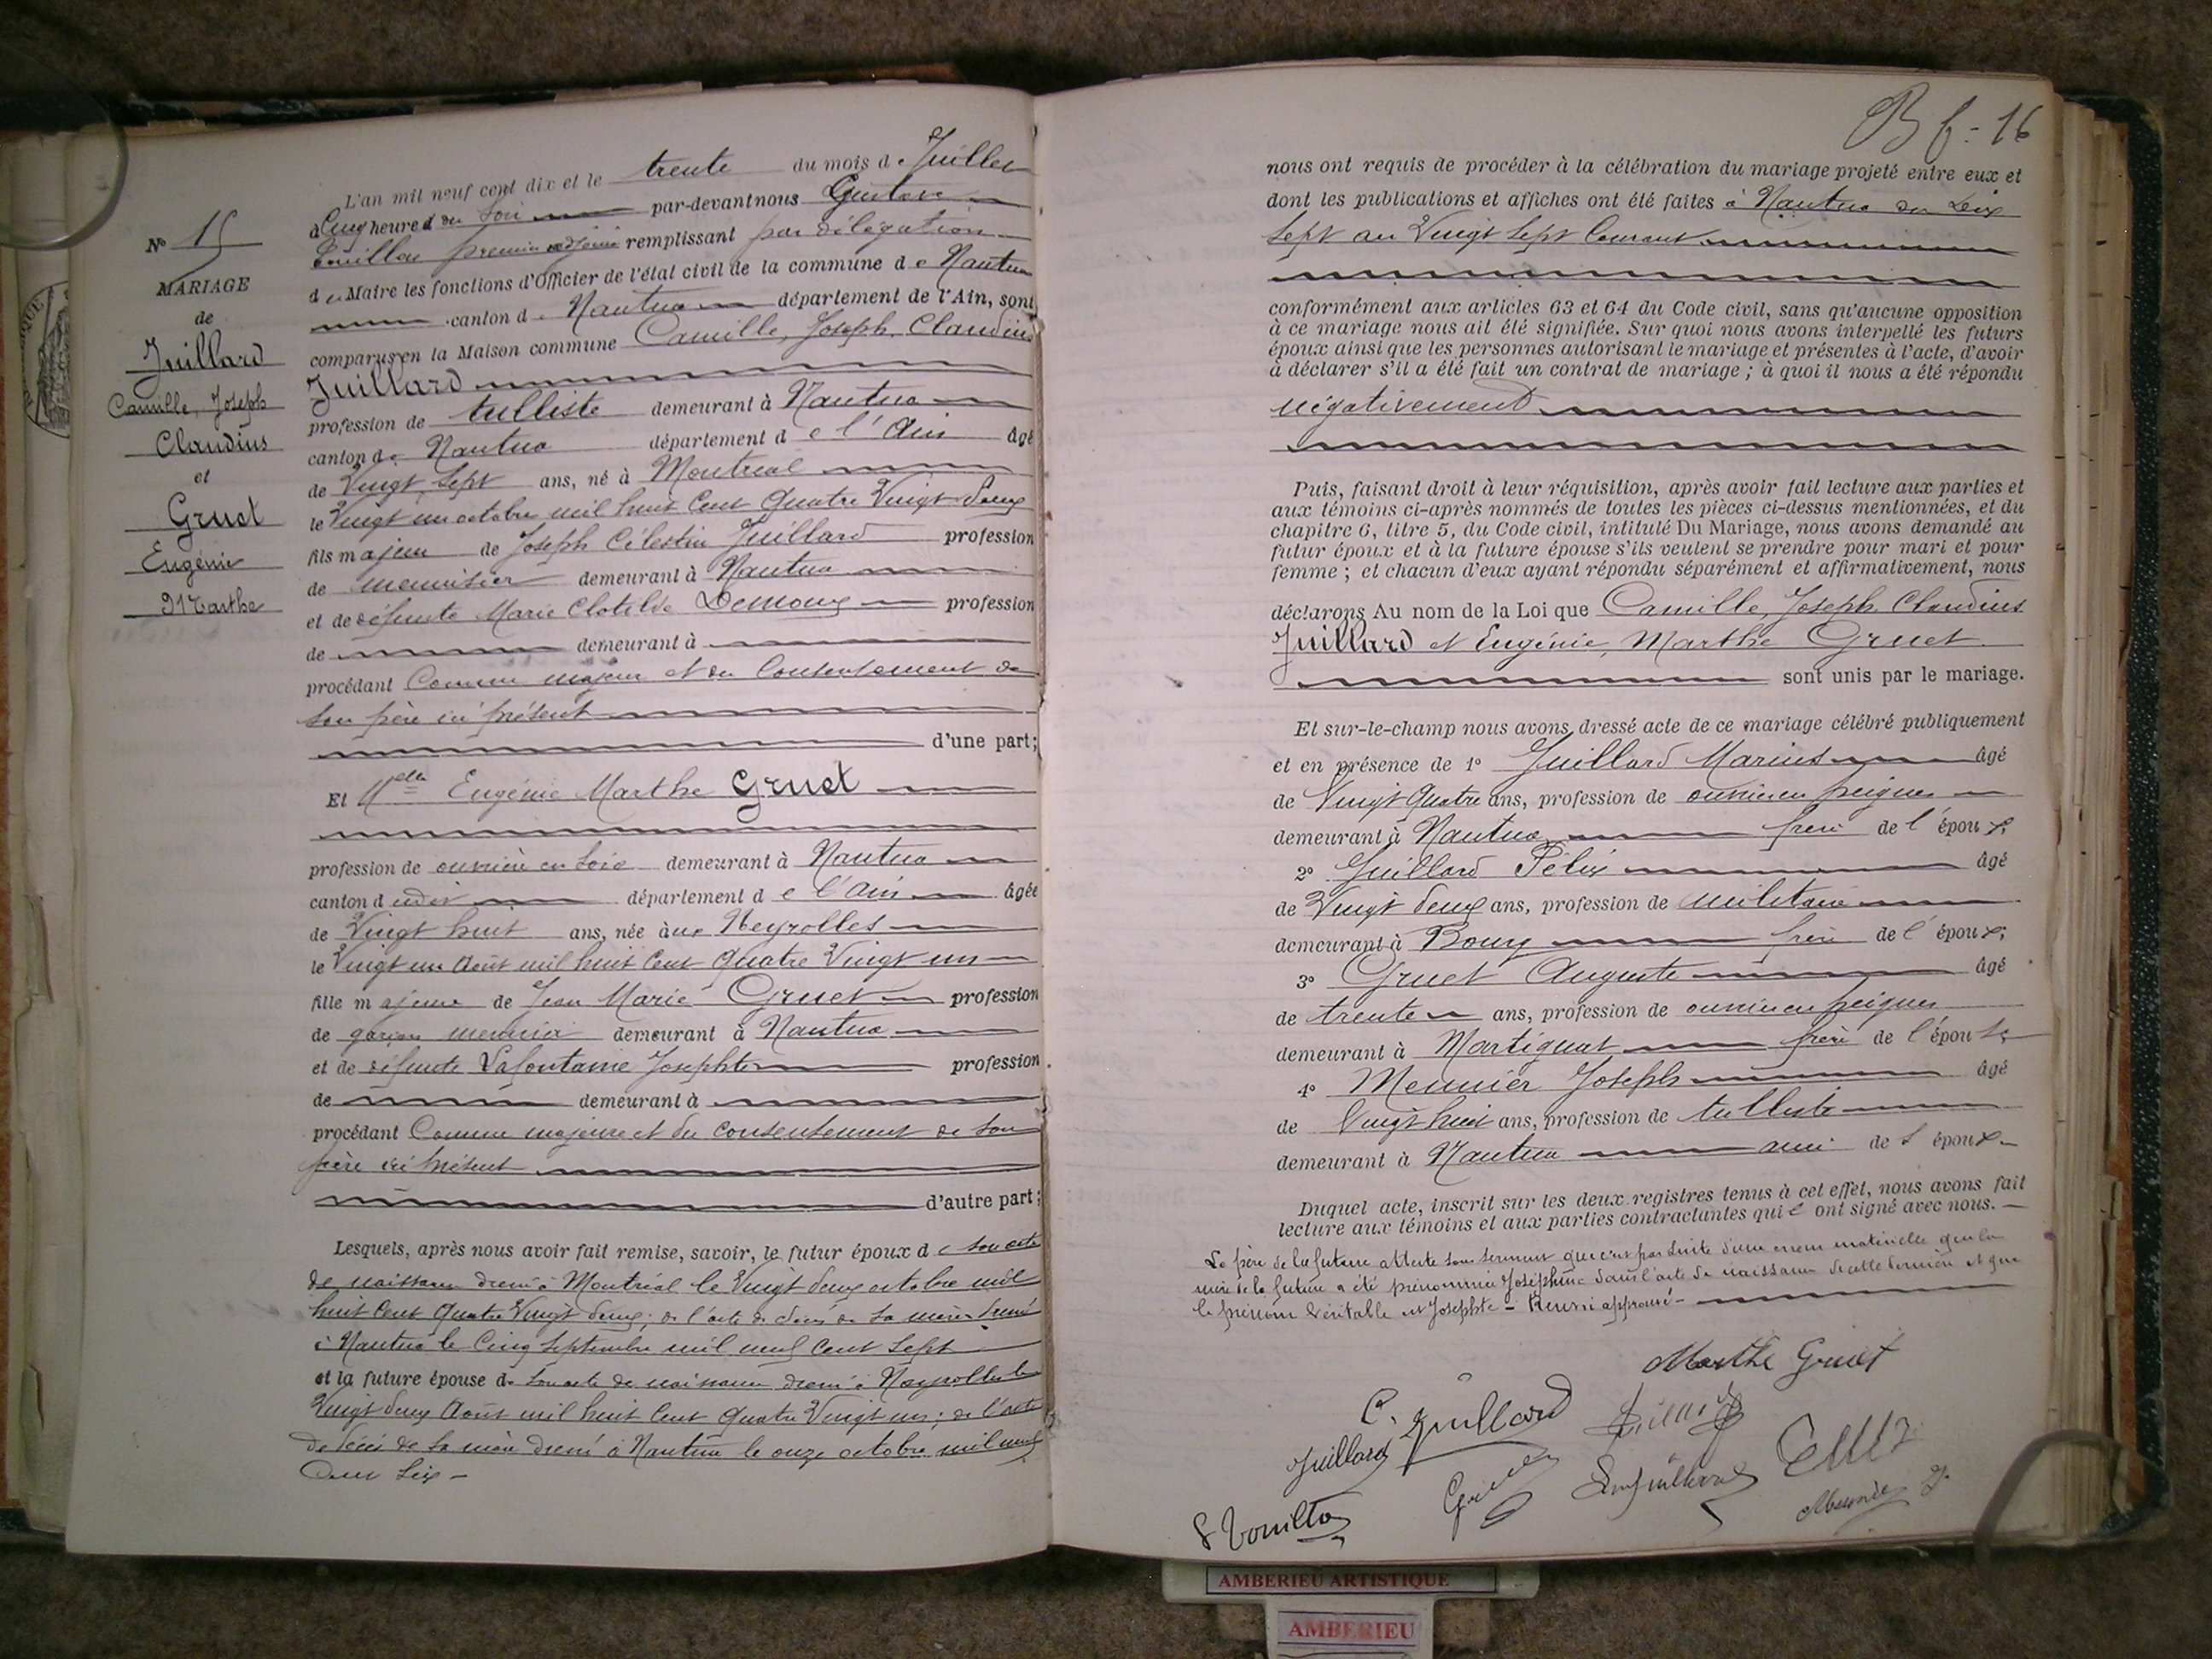 N° 15
MARIAGE
de
Juillard
Camille, Joseph
Claudius
et
Gruet
Eugénie
Marthe
L'an mil neuf cent dix et le trente du mois de Juillet
à Cinq heures du Soir par-devant nous Gustave
premier adjoint remplissant par délégation
du Maire les fonctions d'Officier de l'état civil de la commune de Nantua
canton de Nantua département de l'Ain, sont
comparus en la Maison commune Camille, Joseph, Claudius
Juillard
profession de tulliste demeurant à Nantua
canton de Nantua département de l'Ain âgé
de Vingt Sept ans, né à Montreal
le Vingt un octobre mil huit Cent Quatre Vingt Deux
fils majeur de Joseph Célestin Juillard profession
de menuisier demeurant à Nantua
et de défunte Marie Clotilde Demoux profession
de demeurant à
procédant Comme majeur et du Consentement de
son père ici présent
d'une part;
Et Melle Eugénie Marthe Gruet
profession de ouvrière en soie demeurant à Nantua
canton dudit département de l'Ain âgée
de Vingt huit ans, née aux Neyrolles
le Vingt un Août mil huit Cent Quatre Vingt un
fille majeure de Jean Marie Gruet profession
de garçon meunier demeurant à Nantua
et de défunte Lafontaine Josephte profession
de demeurant à
procédant Comme majeure et du consentement de son
père ici présent
d'autre part;
Lesquels, après nous avoir fait remise, savoir, le futur époux de son acte
de naissance dressé à Montréal le Vingt deux octobre mil
huit Cent Quatre Vingt deux; de l'acte de décès de sa mère dressé
à Nantua le Cinq Septembre mil neuf Cent Sept
et la future épouse de son acte de naissance dressé à Neyrolles le
Vingt deux Août mil huit Cent Quatre Vingt un; de l'acte
de décès de sa mère dressé à Nantua le onze octobre mil neuf
Cent Six
B f - 16
nous ont requis de procéder à la célébration du mariage projeté entre eux et
dont les publications et affiches ont été faites à Nantua du Dix
Sept au Vingt Sept Courant
conformément aux articles 63 et 64 du Code civil, sans qu'aucune opposition
à ce mariage nous ait été signifiée. Sur quoi nous avons interpellé les futurs
époux ainsi que les personnes autorisant le mariage et présentes à l'acte, d'avoir
à déclarer s'il a été fait un contrat de mariage; à quoi il nous a été répondu
négativement
Puis, faisant droit à leur réquisition, après avoir fait lecture aux parties et
aux témoins ci-après nommés de toutes les pièces ci-dessus mentionnées, et du
chapitre 6, titre 5, du Code civil, intitulé Du Mariage, nous avons demandé au
futur époux et à la future épouse s'ils veulent se prendre pour mari et pour
femme; et chacun d'eux ayant répondu séparément et affirmativement, nous
déclarons Au nom de la Loi que Camille, Joseph Claudius
Juillard et Eugénie, Marthe Gruet
sont unis par le mariage.
Et sur-le-champ nous avons dressé acte de ce mariage célébré publiquement
et en présence de 1° Juillard Marius âgé
de Vingt Quatre ans, profession de ouvrier en peignes
demeurant à Nantua frère de l'époux;
2° Juillard Félix âgé
de Vingt deux ans, profession de militaire
demeurant à Bourg frère de l'époux;
3° Gruet Auguste âgé
de trente ans, profession de ouvrier en peignes
demeurant à Martignat frère de l'épouse
4° Meunier Joseph âgé
de Vingt huit ans, profession de tulliste
demeurant à Nantua ami de l'époux
Duquel acte, inscrit sur les deux registres tenus à cet effet, nous avons fait
lecture aux témoins et aux parties contractantes qui ont signé avec nous.
Le père de la future atteste sous serment que c'est par suite d'une erreur matérielle que la
mère de la future a été prénommée Joséphine dans l'acte de naissance de cette dernière et que
le prénom véritable est Josephte -
Marthe Gruet
C. Juillard
Juillard
AMBERIEU ARTISTIQUE
AMBERIEU